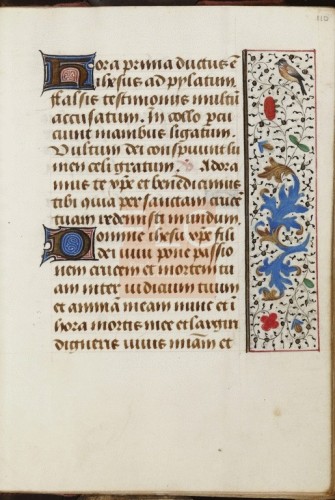 Hora prima ductus ē
ihesus ad pylatum
ffalsis testimonijs multū
accusatum. In collo ꝑcu
ciunt manibus ligatum.
Vultum dei conspuunt lu
men celi gratum. Adora
mus te xp̄e et benedicimus
tibi quia per sanctam crucē
tuam redemisti mundum.
Domine ihesu xp̄e fili
dei viui pone passio
nem crucem et mortem tu
am inter iudicium tuum
et animā meam nunc et ī
hora mortis mee et largiri
digneris viuis miam̄ et